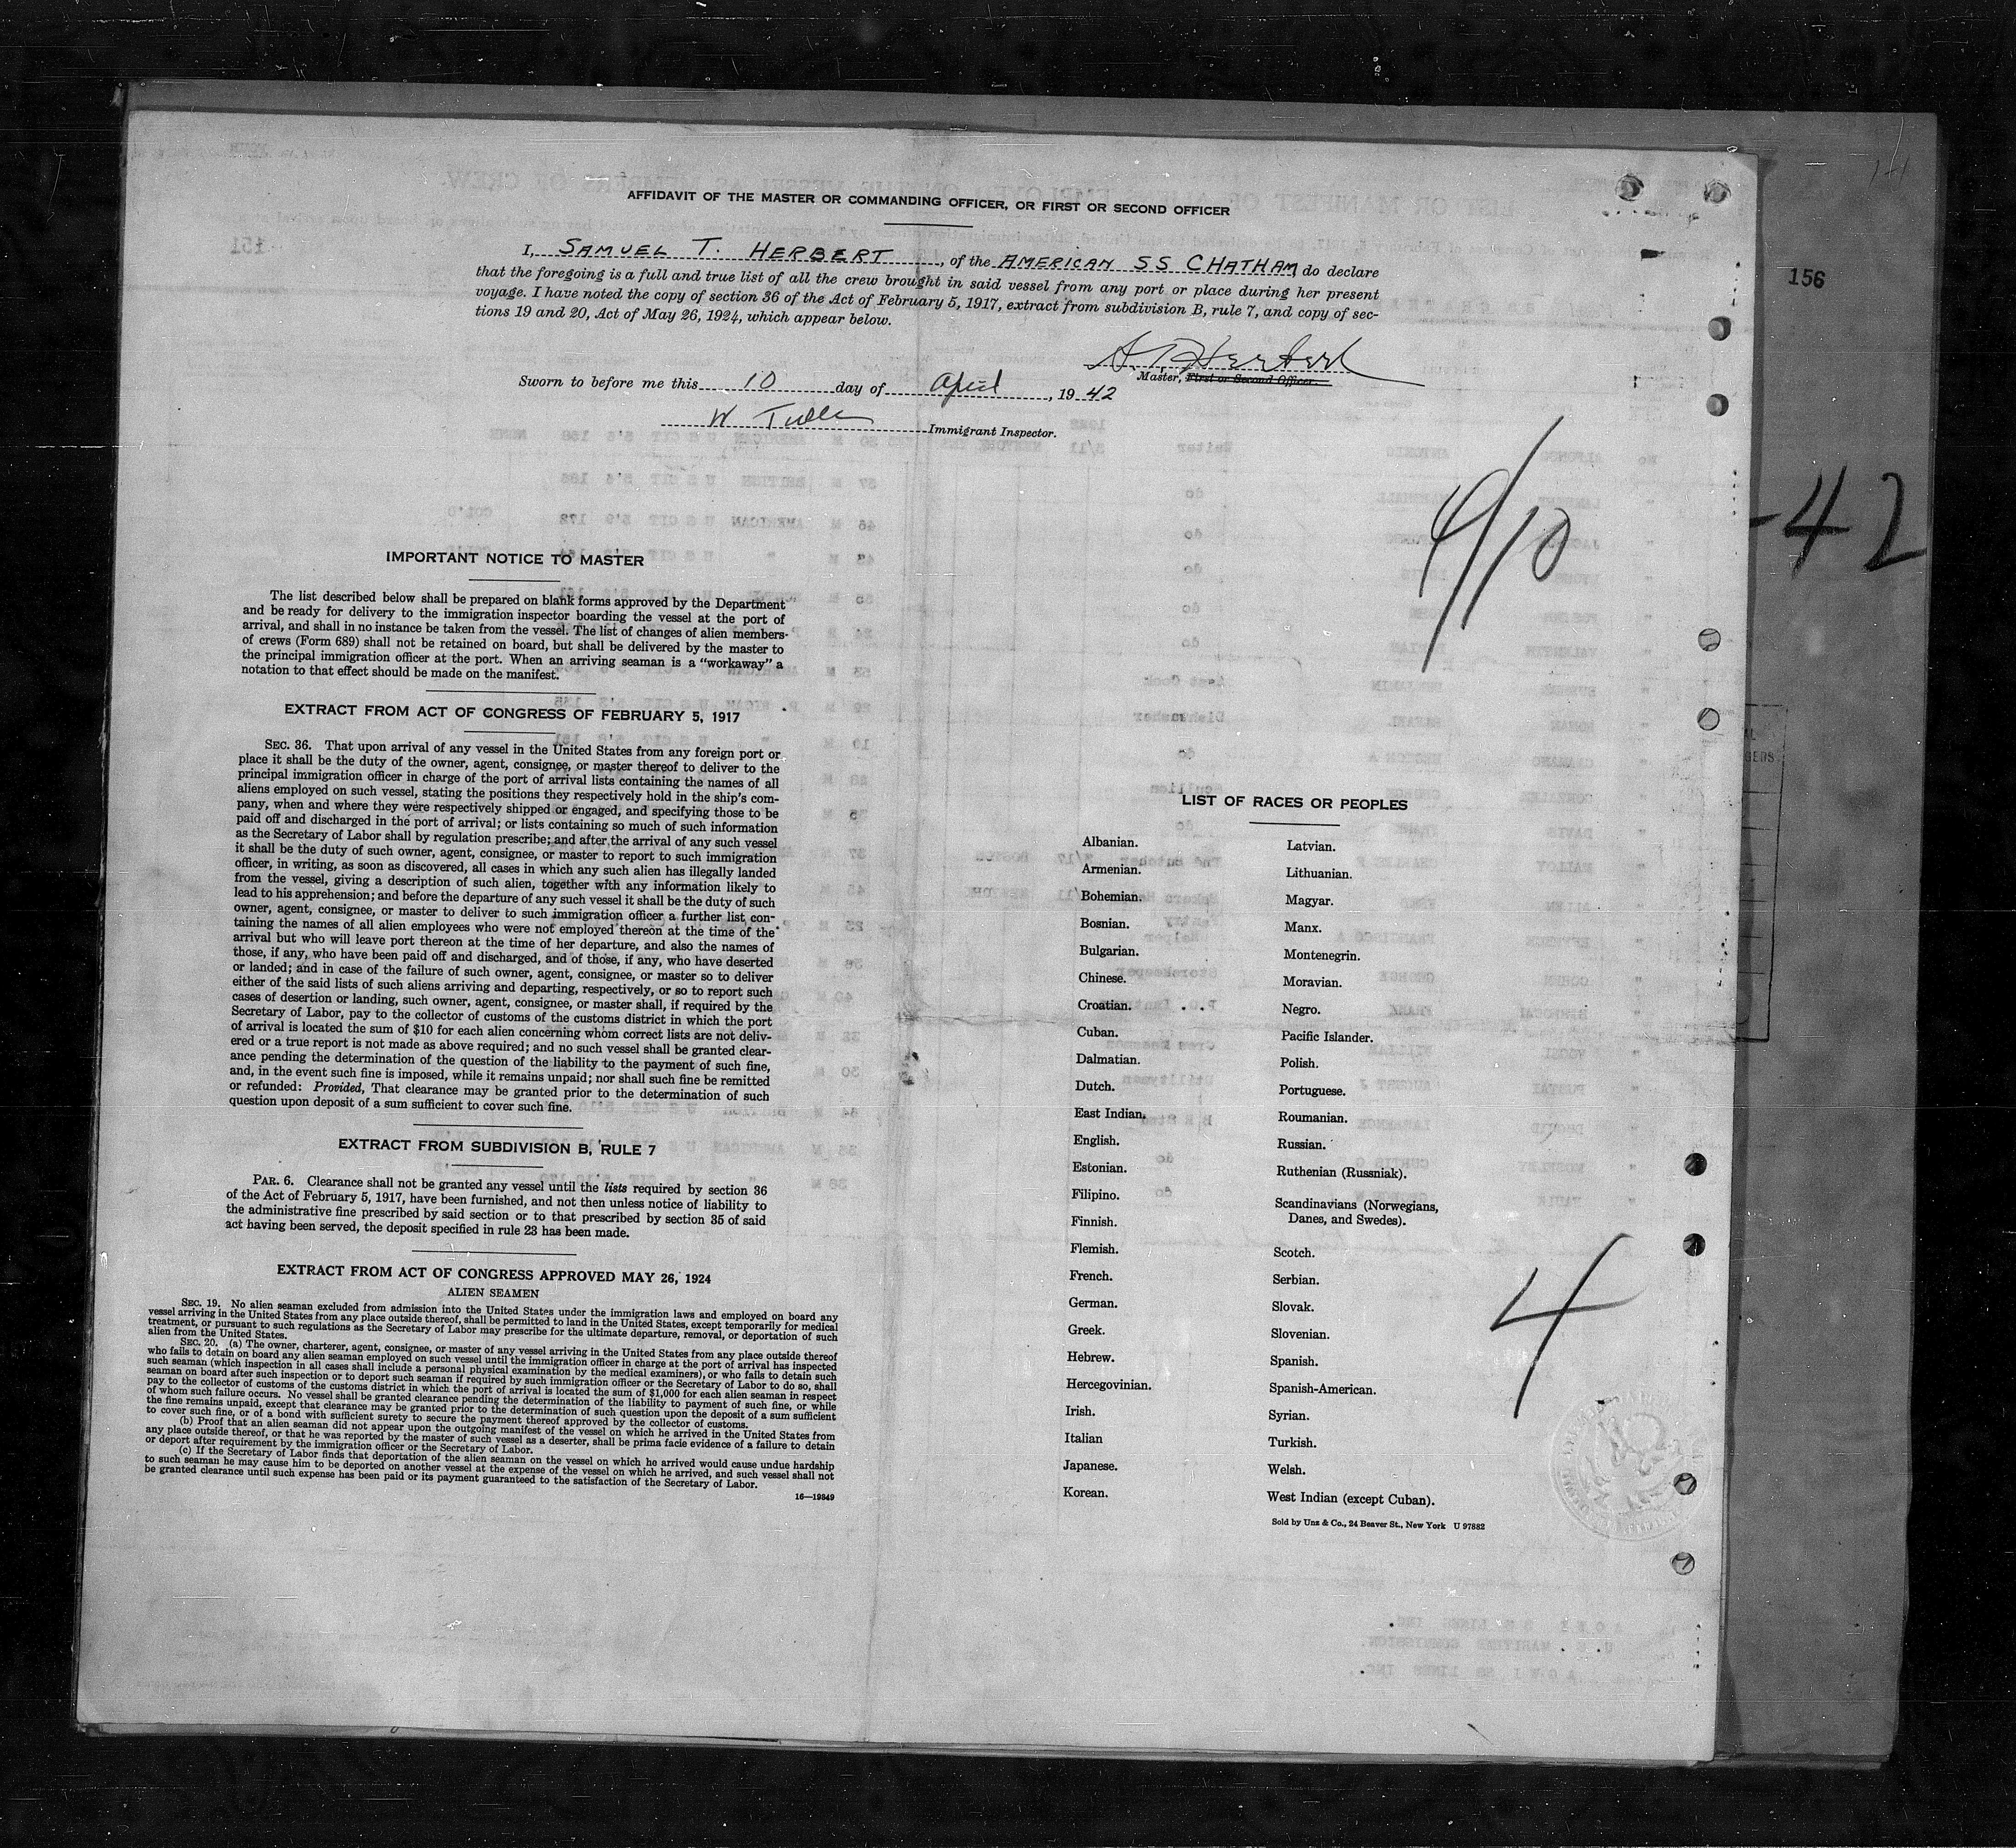 AFFIDAVIT OF THE MASTER OR COMMANDING OFFICER, OR FIRST OR SECOND OFFICER
I, SAMUEL T. HERBERT, of the AMERICAN SS CHATHAM, do declare
that the foregoing is a full and true list of all the crew brought in said vessel from any port or place during her present
voyage. I have noted the copy of section 36 of the Act of February 5, 1917, extract from subdivision B, rule 7, and copy of sec-
tions 19 and 20, Act of May 26, 1924, which appear below.
S. T. Herbert
Master, First or Second Officer.
Sworn to before me this 10 day of April, 1942
W
Immigrant Inspector.
156
4/10
-42
IMPORTANT NOTICE TO MASTER
The list described below shall be prepared on blank forms approved by the Department
and be ready for delivery to the immigration inspector boarding the vessel at the port of
arrival, and shall in no instance be taken from the vessel. The list of changes of alien members
of crews (Form 689) shall not be retained on board, but shall be delivered by the master to
the principal immigration officer at the port. When an arriving seaman is a "workaway" a
notation to that effect should be made on the manifest.
EXTRACT FROM ACT OF CONGRESS OF FEBRUARY 5, 1917
SEC. 36. That upon arrival of any vessel in the United States from any foreign port or
place it shall be the duty of the owner, agent, consignee, or master thereof to deliver to the
principal immigration officer in charge of the port of arrival lists containing the names of all
aliens employed on such vessel, stating the positions they respectively hold in the ship's com-
pany, when and where they were respectively shipped or engaged, and specifying those to be
paid off and discharged in the port of arrival; or lists containing so much of such information
as the Secretary of Labor shall by regulation prescribe; and after the arrival of any such vessel
it shall be the duty of such owner, agent, consignee, or master to report to such immigration
officer, in writing, as soon as discovered, all cases in which any such alien has illegally landed
from the vessel, giving a description of such alien, together with any information likely to
lead to his apprehension; and before the departure of any such vessel it shall be the duty of such
owner, agent, consignee, or master to deliver to such immigration officer a further list con-
taining the names of all alien employees who were not employed thereon at the time of the
arrival but who will leave port thereon at the time of her departure, and also the names of
those, if any, who have been paid off and discharged, and of those, if any, who have deserted
or landed; and in case of the failure of such owner, agent, consignee, or master so to deliver
either of the said lists of such aliens arriving and departing, respectively, or so to report such
cases of desertion or landing, such owner, agent, consignee, or master shall, if required by the
Secretary of Labor, pay to the collector of customs of the customs district in which the port
of arrival is located the sum of $10 for each alien concerning whom correct lists are not deliv-
ered or a true report is not made as above required; and no such vessel shall be granted clear-
ance pending the determination of the question of the liability to the payment of such fine,
and, in the event such fine is imposed, while it remains unpaid; nor shall such fine be remitted
or refunded: Provided, That clearance may be granted prior to the determination of such
question upon deposit of a sum sufficient to cover such fine.
EXTRACT FROM SUBDIVISION B, RULE 7
PAR. 6. Clearance shall not be granted any vessel until the lists required by section 36
of the Act of February 5, 1917, have been furnished, and not then unless notice of liability to
the administrative fine prescribed by said section or to that prescribed by section 35 of said
act having been served, the deposit specified in rule 23 has been made.
EXTRACT FROM ACT OF CONGRESS APPROVED MAY 26, 1924
ALIEN SEAMEN
SEC. 19. No alien seaman excluded from admission into the United States under the immigration laws and employed on board any
vessel arriving in the United States from any place outside thereof, shall be permitted to land in the United States, except temporarily for medical
treatment, or pursuant to such regulations as the Secretary of Labor may prescribe for the ultimate departure, removal, or deportation of such
alien from the United States.
SEC. 20. (a) The owner, charterer, agent, consignee, or master of any vessel arriving in the United States from any place outside thereof
who fails to detain on board any alien seaman employed on such vessel until the immigration officer in charge at the port of arrival has inspected
such seaman (which inspection in all cases shall include a personal physical examination by the medical examiners), or who fails to detain such
seaman on board after such inspection or to deport such seaman if required by such immigration officer or the Secretary of Labor to do so, shall
pay to the collector of customs of the customs district in which the port of arrival is located the sum of $1,000 for each alien seaman in respect
of whom such failure occurs. No vessel shall be granted clearance pending the determination of the liability to payment of such fine, or while
the fine remains unpaid, except that clearance may be granted prior to the determination of such question upon the deposit of a sum sufficient
to cover such fine, or of a bond with sufficient surety to secure the payment thereof approved by the collector of customs.
(b) Proof that an alien seaman did not appear upon the outgoing manifest of the vessel on which he arrived in the United States from
any place outside thereof, or that he was reported by the master of such vessel as a deserter, shall be prima facie evidence of a failure to detain
or deport after requirement by the immigration officer or the Secretary of Labor.
(c) If the Secretary of Labor finds that deportation of the alien seaman on the vessel on which he arrived would cause undue hardship
to such seaman he may cause him to be deported on another vessel at the expense of the vessel on which he arrived, and such vessel shall not
be granted clearance until such expense has been paid or its payment guaranteed to the satisfaction of the Secretary of Labor.
16—19849
LIST OF RACES OR PEOPLES
Albanian.
Armenian.
Bohemian.
Bosnian.
Bulgarian.
Chinese.
Croatian.
Cuban.
Dalmatian.
Dutch.
East Indian.
English.
Estonian.
Filipino.
Finnish.
Flemish.
French.
German.
Greek.
Hebrew.
Hercegovinian.
Irish.
Italian
Japanese.
Korean.
Latvian.
Lithuanian.
Magyar.
Manx.
Montenegrin.
Moravian.
Negro.
Pacific Islander.
Polish.
Portuguese.
Roumanian.
Russian.
Ruthenian (Russniak).
Scandinavians (Norwegians,
Danes, and Swedes).
Scotch.
Serbian.
Slovak.
Slovenian.
Spanish.
Spanish-American.
Syrian.
Turkish.
Welsh.
West Indian (except Cuban).
4
Sold by Unz & Co., 24 Beaver St., New York U 97882